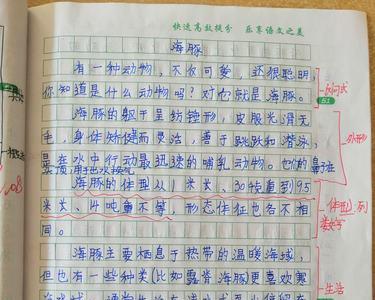 快速高效提分 乐享语文之美
海豚
有一种动物，不仅可爱，还很聪明，
你知道是什么动物吗？对它就是海豚。
设问式
51
海豚的躯干呈纺锤形，皮肤光滑无
毛，身体矫健而灵活，善于跳跃和潜泳，
外形
是在水中行动最迅速的哺乳动物。它们的鼻子在
头顶，用它换气
海豚的体型从1米长、30千克重到9.5
米长、14吨重不等，形态体征也各不相
体型：列
数字
同。
海豚主要栖息于热带的温暖海域，
但也有一些种类（比如露脊海豚）更喜欢寒
生活